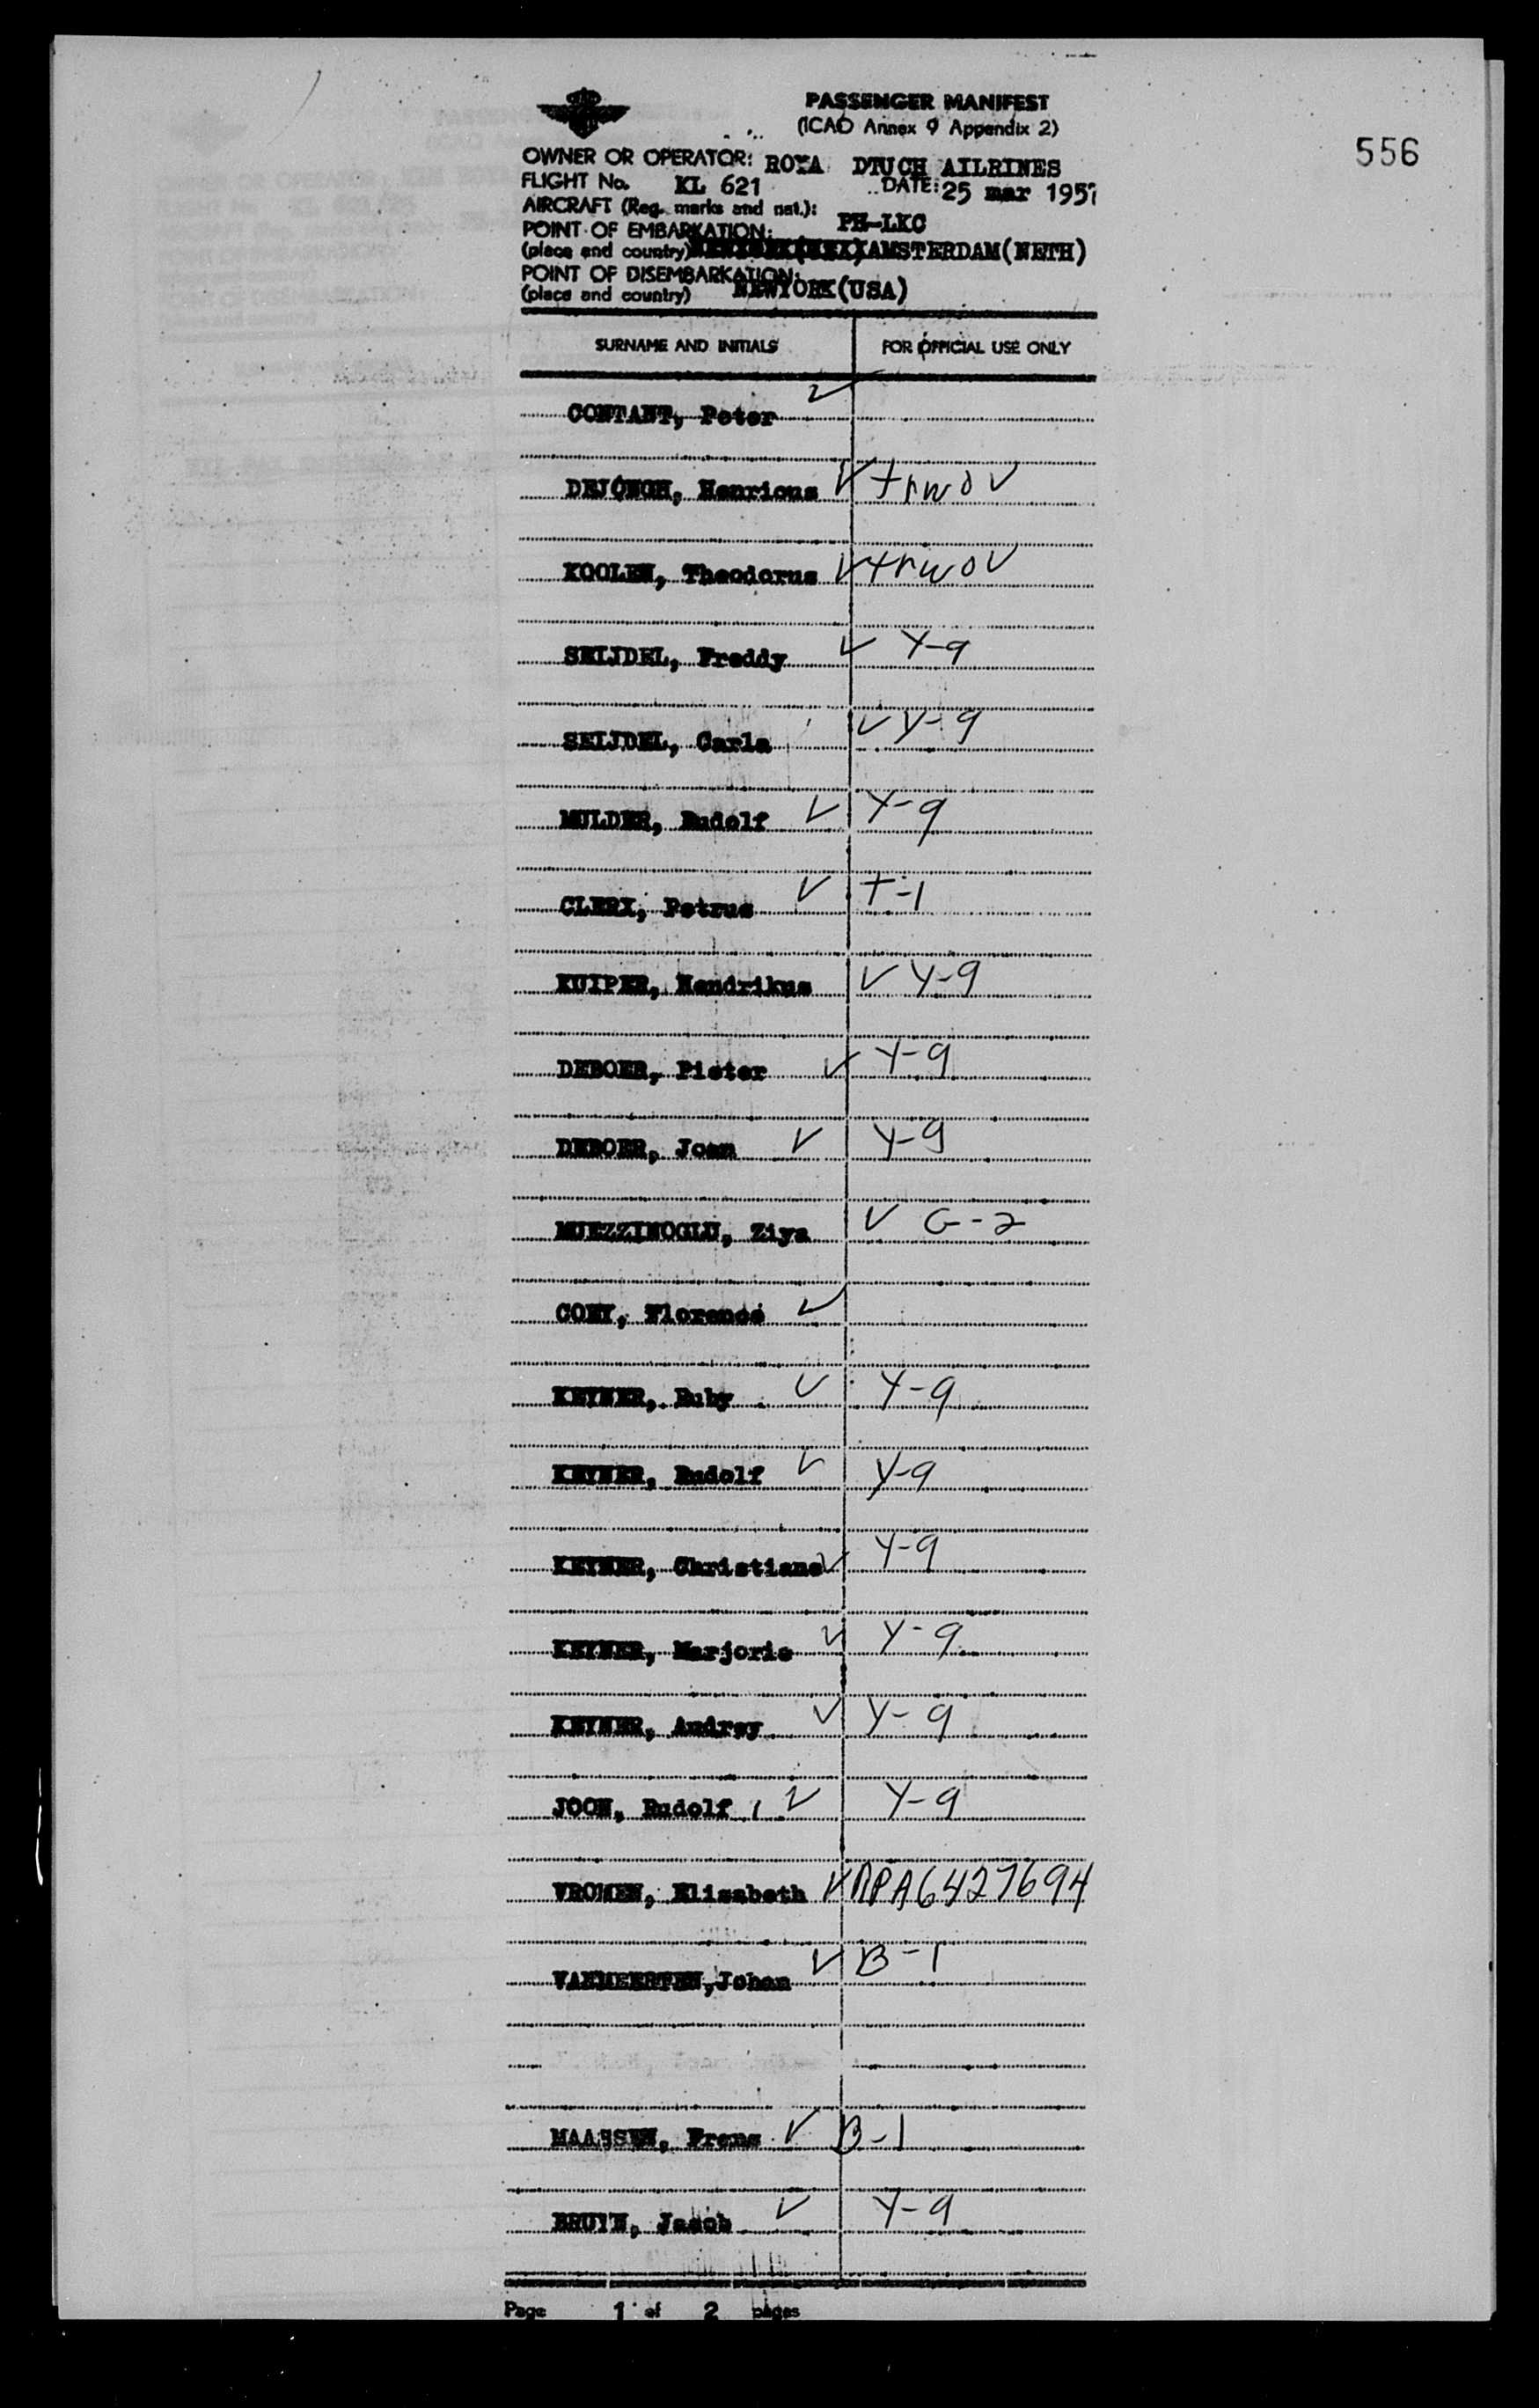 PASSENGER MANIFEST
(ICAO Annex 9 Appendix 2)
556
OWNER OR OPERATOR: ROYA DTUCH AILRINES
FLIGHT No. KL 621 DATE: 25 mar 1957
AIRCRAFT (Reg. marks and nat.): PH-LKC
POINT OF EMBARKATION:
(place and country) AMSTERDAM(NETH)
POINT OF DISEMBARKATION:
(place and country) NEWYORK(USA)
SURNAME AND INITIALS FOR OFFICIAL USE ONLY
CONTANT, Peter ✓
DEJONGH, Henricus ✓ trwov
KOOLEN, Theodorus ✓ trwov
SEIJDEL, Freddy ✓ Y-9
SEIJDEL, Carla ✓ Y-9
MULDER, Rudolf ✓ Y-9
CLERX, Petrus ✓ T-1
KUIPER, Hendrikus ✓ Y-9
DEBOER, Pieter ✓ Y-9
DEBOER, Joan ✓ Y-9
MUEZZINOGLU, Ziya ✓ G-2
Florence ✓
KEYNER, Ruby ✓ Y-9
KEYNER, Rudolf ✓ Y-9
KEYNER, Christiane ✓ Y-9
KEYNER, Marjorie ✓ Y-9
KEYNER, Audrey ✓ Y-9
JOON, Rudolf ✓ Y-9
VROMEN, Elisabeth ✓ RPA6427694
VANMEERTEN, Johan ✓ B-1
MAASSEN, Frans ✓ B-1
BRUIN, Jacob ✓ Y-9
Page 1 of 2 pages